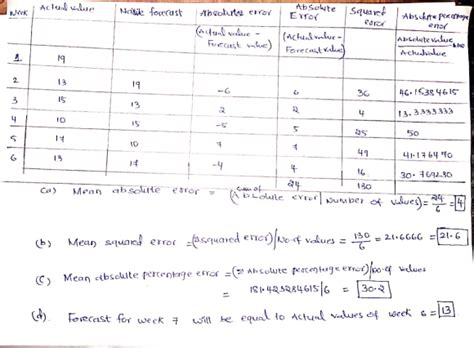 Week | Actual value | Naive forecast | Absolute error (Actual value - Forecast value) | Absolute Error (Actual value - Forecast value) | Squared error | Absolute percentage error Absolute value / Actual value
1 | 19
2 | 13 | 19 | -6 | 6 | 36 | 46.15384615
3 | 15 | 13 | 2 | 2 | 4 | 13.3333333
4 | 10 | 15 | -5 | 5 | 25 | 50
5 | 17 | 10 | 7 | 7 | 49 | 41.176470
6 | 13 | 17 | -4 | 4 | 16 | 30.769230
24 | 130
(a) Mean absolute error = (sum of Absolute error / Number of values) = 24/6 = 4
(b) Mean squared error = (squared error)/No of values = 130/6 = 21.6666 = 21.6
(c) Mean absolute percentage error = (Σ Absolute percentage error)/no of values
= 181.423284615/6 = 30.2
(d). Forecast for week 7 will be equal to Actual values of week 6 = 13